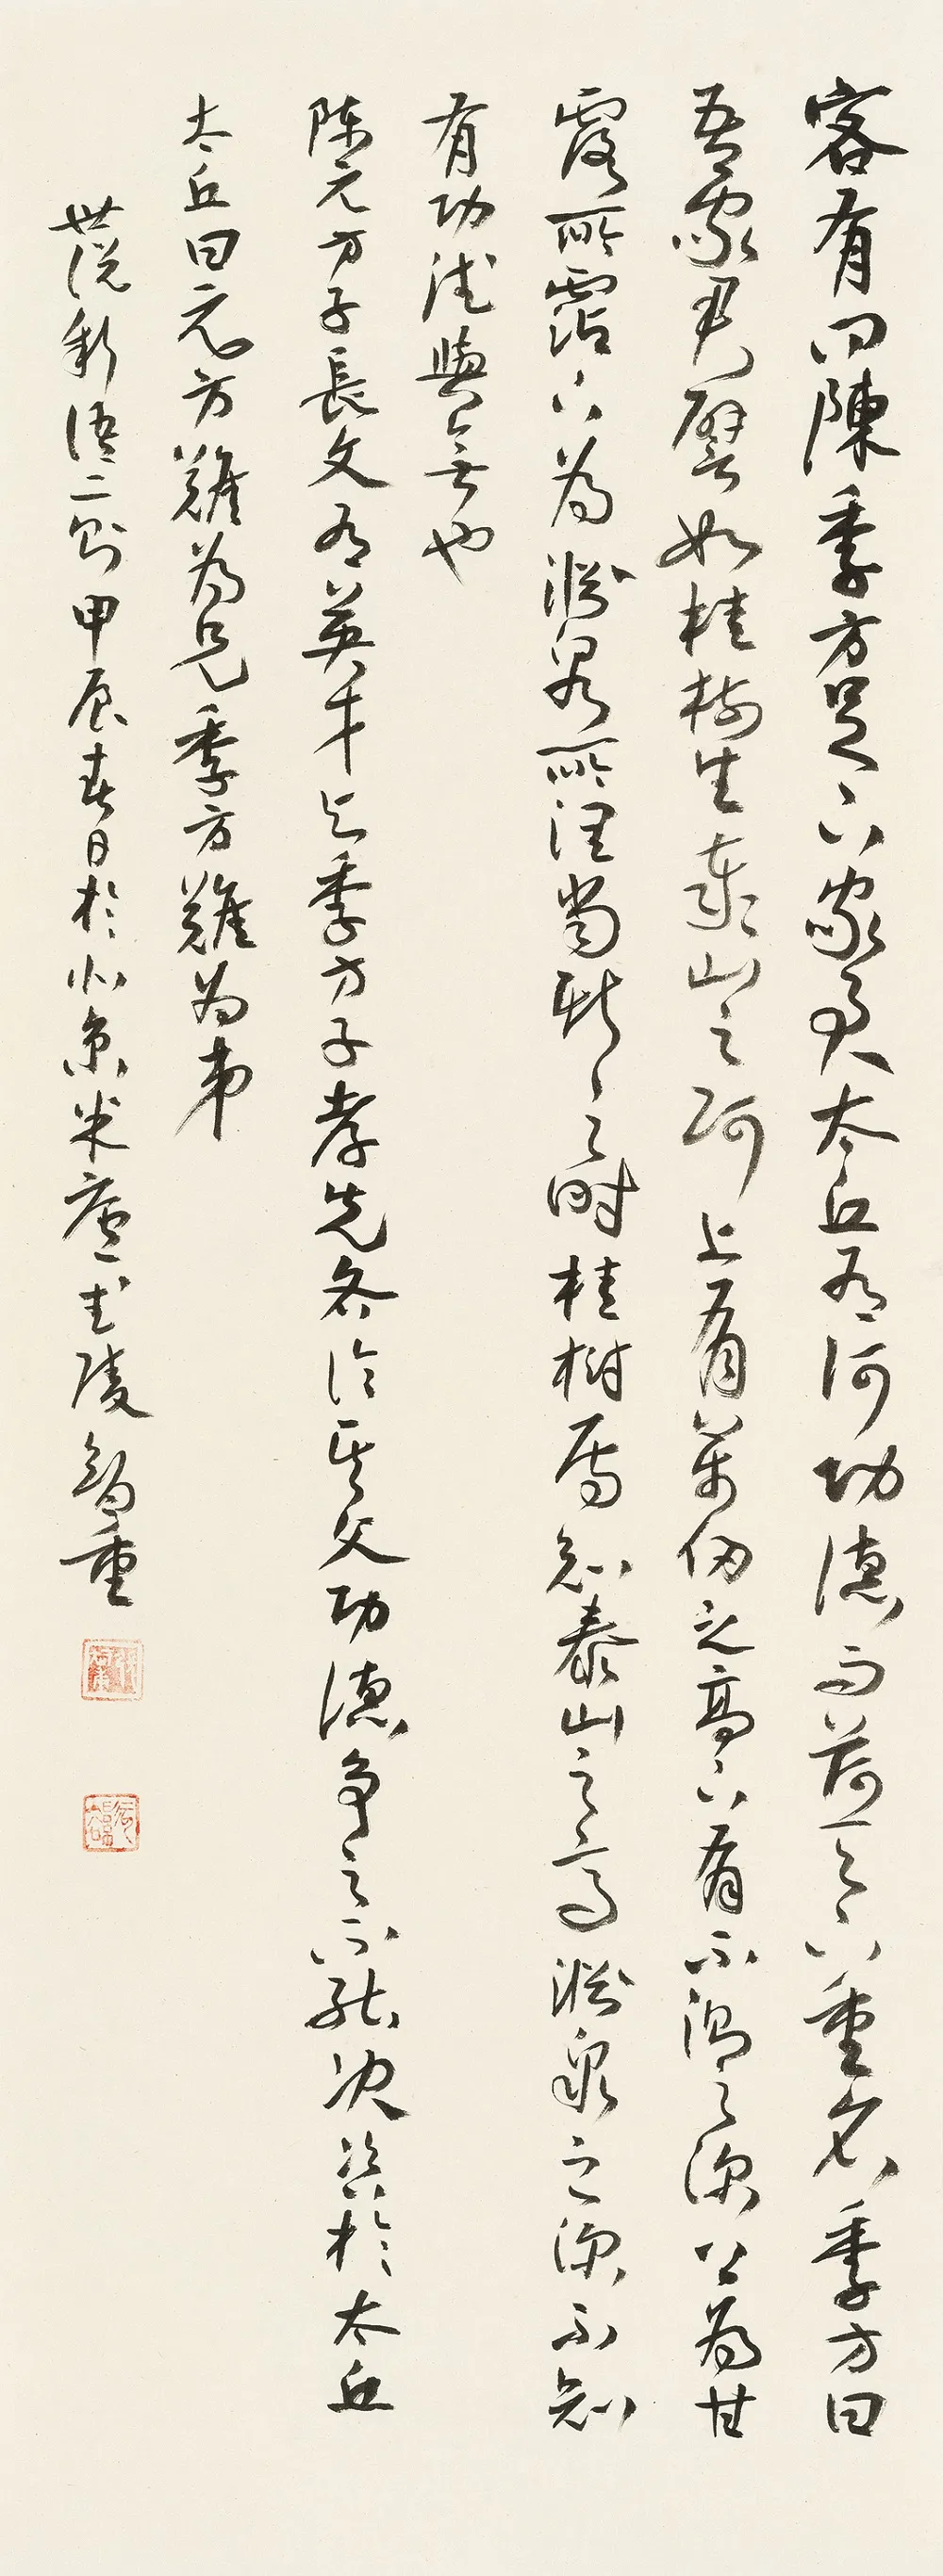 客有问陳季方足下家君太丘有何功德而荷天下重名季方曰
吾家君譬如桂樹生泰山之阿上有萬仞之高下有不測之深上為甘
露所霑下為淵泉所潤當斯之時桂樹焉知泰山之高淵泉之深不知
有功德與無也
陳元方子長文有英才與季方子孝先各論其父功德争之不能決咨於太丘
太丘曰元方難為兄季方難為弟
世說新語二則甲辰春日於北京米庵武陵智重